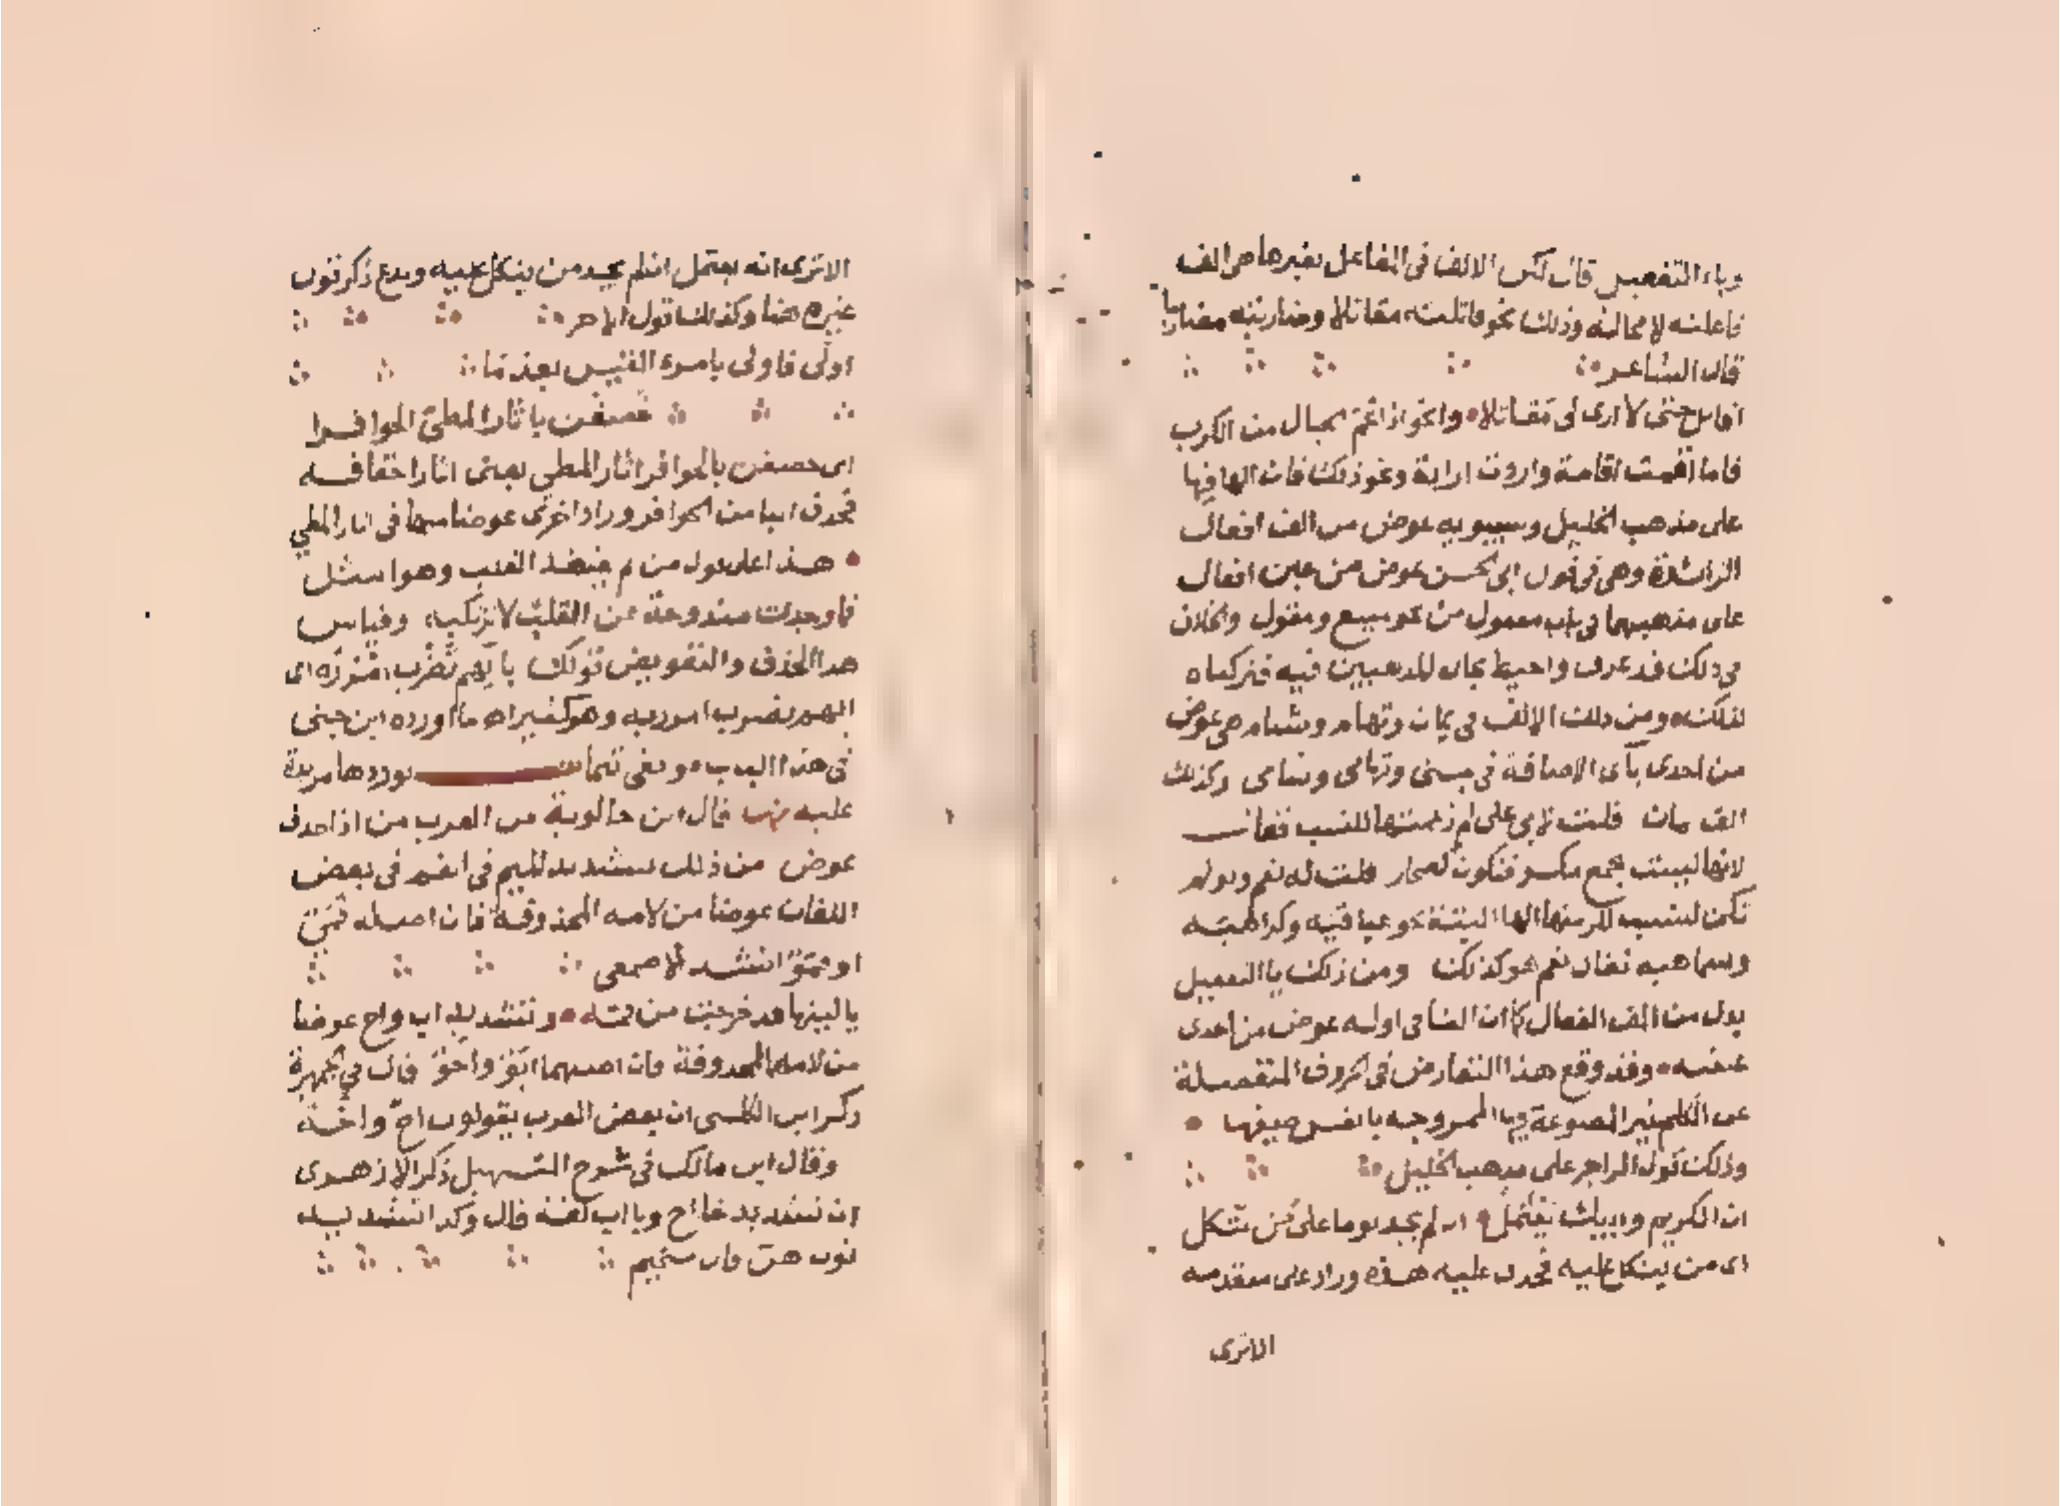 وياء التفعيل قال لكن الالف في المفاعل بغيرها هي الف
فاعلته لا محالة وذلك نحو قاتلته مقاتلا وضاربته مضاربا
قال الشاعر
اقاتل حتى لا ارى لي مقاتلا وانجو اذا غم الجبال من الكرب
فاما اقمت اقامة واردت ارادة ونحو ذلك فان الها فيها
على مذهب الخليل وسيبويه عوض من الف افعال
الزائدة وهي في قول ابي الحسن عوض من عين افعال
على مذهبيهما في باب مفعول من نحو مبيع ومقول والخلاف
في ذلك قد عرف واحيط بحال المذهبين فيه فتركناه
لذلك ومن ذلك الالف في يمان وتهام وشام هي عوض
من احدى ياى الاضافة في يمنى وتهامى وشامى وكذلك
الف ثمان قلت لابي علي لم زعمتها للنسب فقال
لانها ليست بجمع مكسر فتكون كصحار قلت له نعم ولو لم
تكن للنسب للزمتها الها البتة نحو عباقية وكراهية
وسباهية فقال نعم هو كذلك ومن ذلك يا التفعيل
بدل من الف الفعال كما ان التا في اوله عوض من احدى
عينيه وقد وقع هذا التعاوض في الحروف المنفصلة
عن الكلم غير المصوغة فيها الممزوجة بانفس صيغها
وذلك قول الراجز على مذهب الخليل
ان الكريم وابيك يعتمل ان لم يجد يوما على من يتكل
اى من يتكل عليه فحذف عليه هذه وزاد على متقدمة
الاترى
الاترى انه يعتمل ان لم يجد من يتكل عليه وندع ذكر قول
غيره هنا وكذلك قول الاخر
اولى فاولى يامرء القيس بعد ما
خصفن باثار المطي الحوافرا
اى خصفن بالحوافر اثار المطي يعنى اثار اخفافه
فحذف البا من الحوافر وزاد اخرى عوضا منها في اثار المطي
هذا على قول من لم يعتقد القلب وهو امثل
فما وجدت مندوحة عن القلب لا تركبه وقياس
هذا الحذف والتعويض قولك بايهم تضرب امرر اى
ايهم تضرب امرر به وهو كثير اه ما اورده ابن جنى
في هذا الباب وبقي تتمات نوردها مزيدة
عليه قال ابن خالويه من العرب من اذا حذف
عوض من ذلك تشديد الميم في الفم في بعض
اللغات عوضا من لامه المحذوفة فان اصله فمى
او فمو انشد الاصمعي
يا ليتها قد خرجت من فمه وتشديد اب واخ عوضا
من لامهما المحذوفة فان اصلهما ابو واخو قال في الجمهرة
ذكر ابن الكلبي ان بعض العرب يقولون اخ واخة
وقال ابن مالك في شرح التسهيل ذكر الازهرى
ان تشديد خا اخ وبا اب لغة قال وكذا تشديد
نون هن قال سحيم